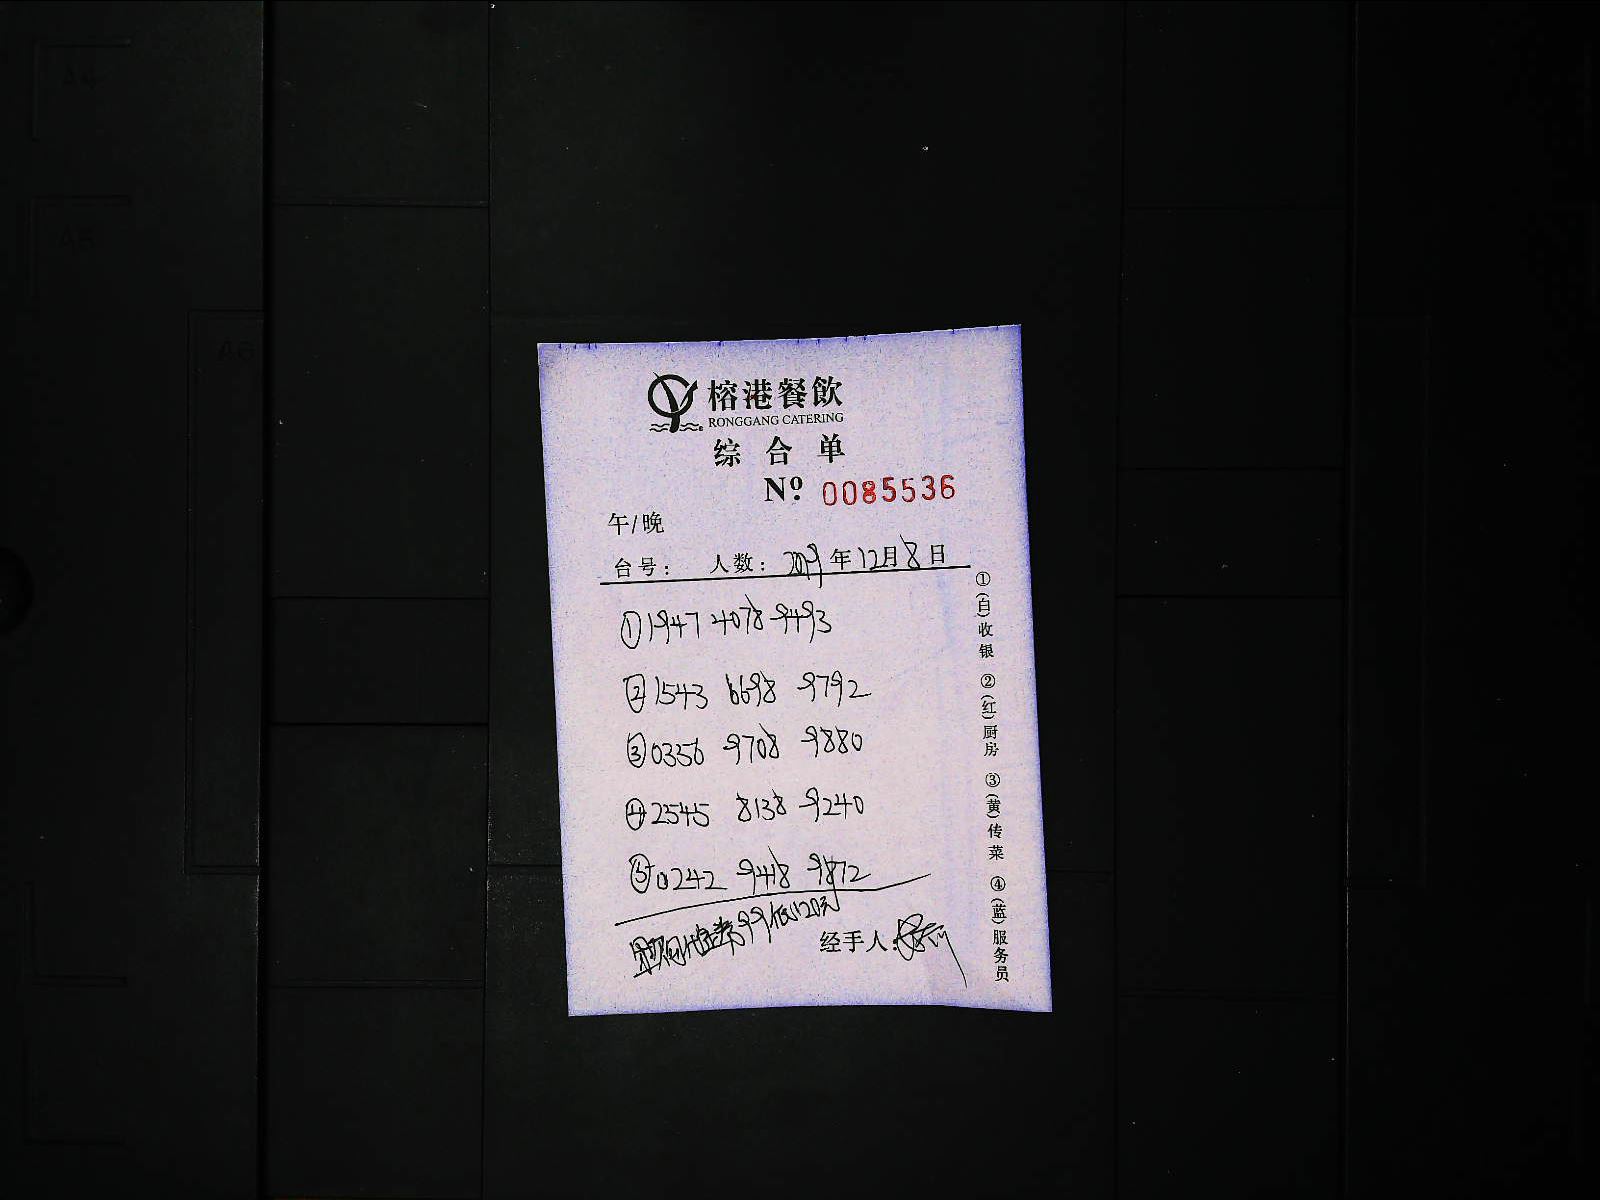 A4
A5
A6
榕港餐飲
RONGGANG CATERING
综合单
Nº 0085536
午/晚
台号: 人数: 2019年12月8日
①1947 4078 9493
②1543 6698 9792
③0356 9708 9880
④2545 8138 9240
⑤0242 9418 9872
美团代金券99抵120元
经手人:
①(白)收银 ②(红)厨房 ③(黄)传菜 ④(蓝)服务员